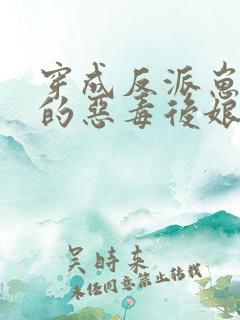 穿成反派崽
的惡毒後娘
吳時来
未经同意禁止转载